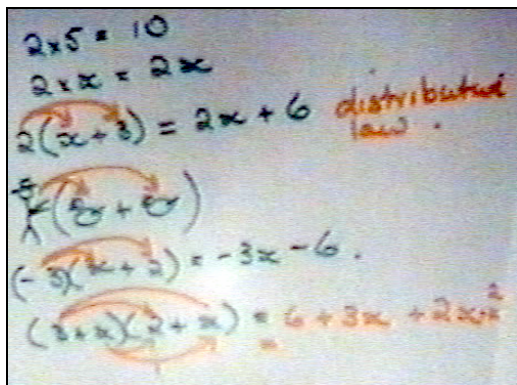 2×5 = 10
2×x = 2x
2(x+3) = 2x+6 distributive law.
(-3)(x+2) = -3x-6.
(3+x)(2+x) = 6+3x+2x+x²